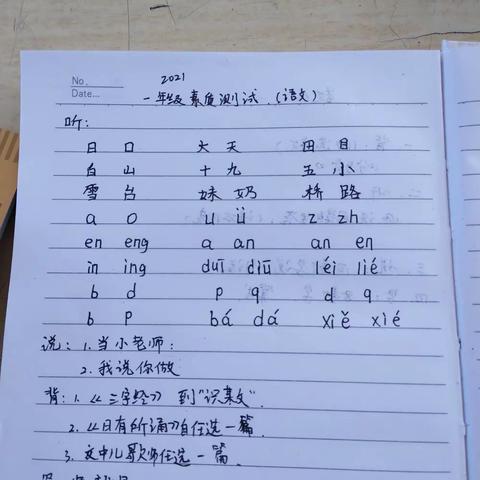 No.
Date...
2021
一年级素质测试.(语文)
听:
日 口 大 天 田 目
白 山 十 九 五 小
雪 台 妹 奶 桥 路
a o u ü z zh
en eng a an an en
in ing duī diū léi lié
b d p q d q
b p bá dá xiě xié
说: 1.当小老师:
2.我说你做
背: 1.《三字经》到"识某文".
2.《日有所诵》自任选一篇.
3.文中儿歌师任选一篇.